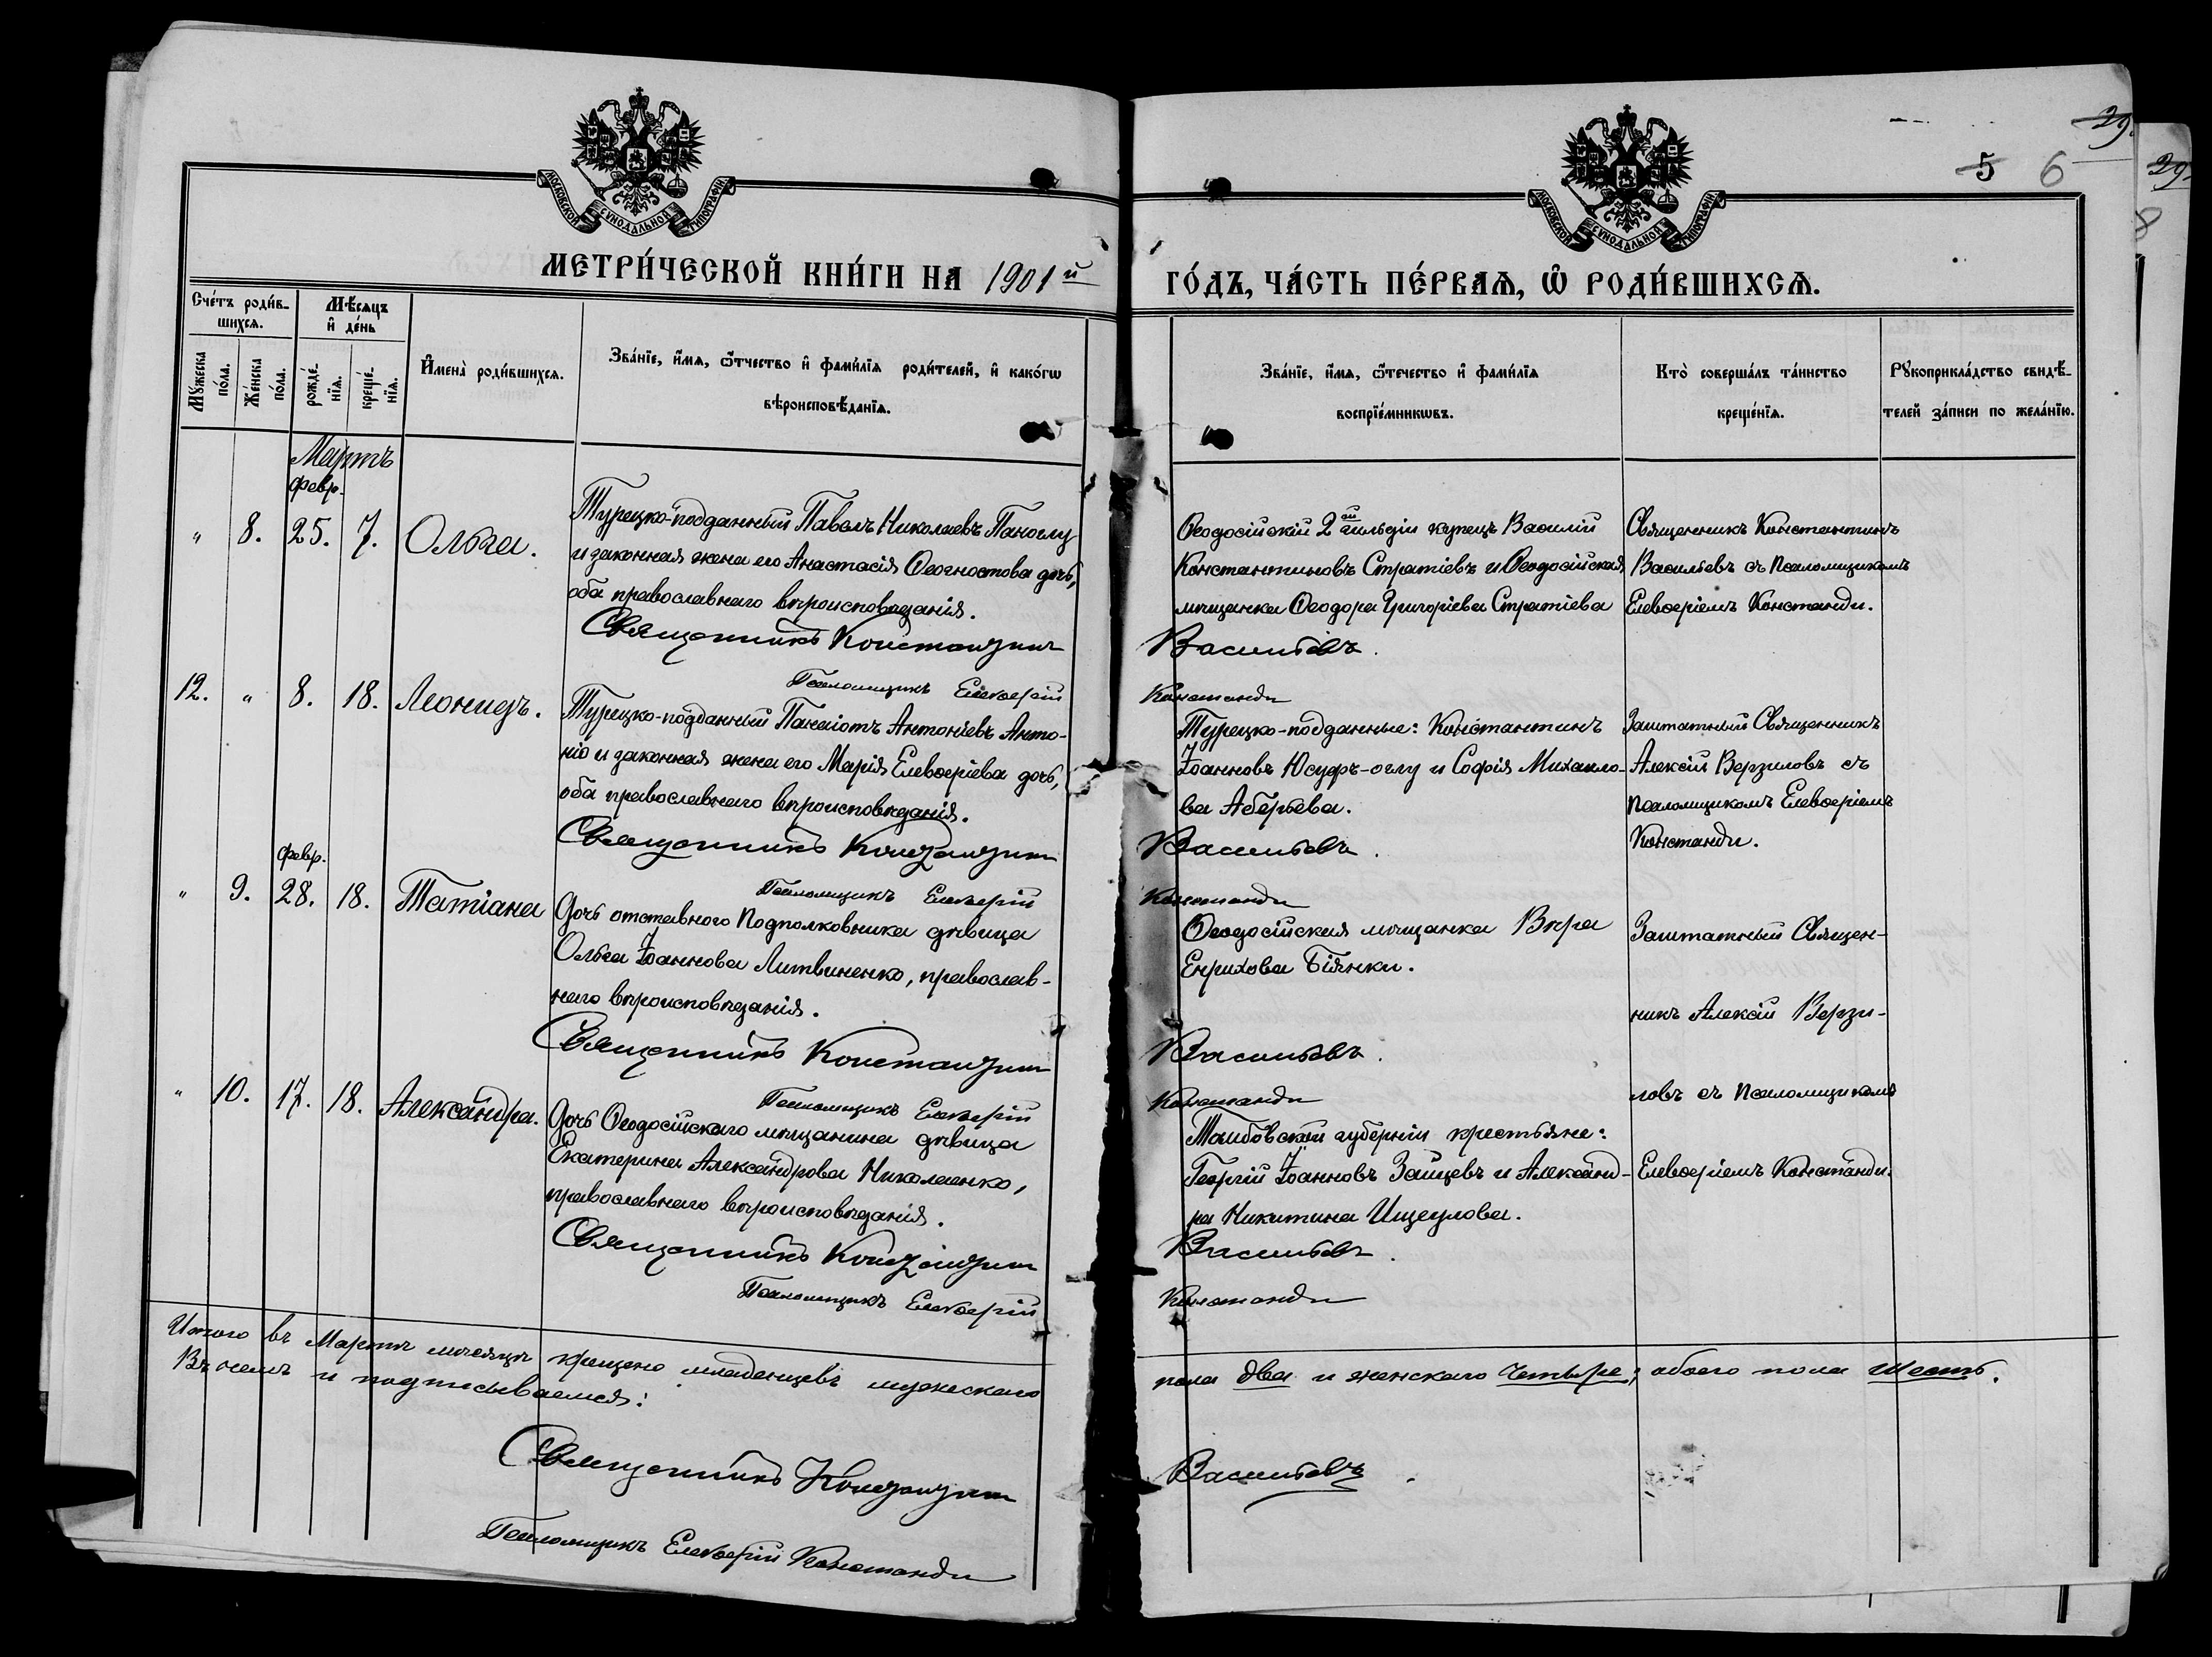 29.
5 6
29.
8
МОСКОВСКОЙ СѴНОДАЛЬНОЙ ТИПОГРАФІИ
МОСКОВСКОЙ СѴНОДАЛЬНОЙ ТИПОГРАФІИ
МЕТРИ́ЧЕСКОЙ КНИ́ГИ НА 1901й
ГО́ДЪ, ЧА́СТЬ ПЕ́РВАѦ, Ѡ҆ РОДИ́ВШИХСѦ.
Сче́тъ роди́в-
шихсѧ.
Мѣ́сѧцъ
и҆ де́нь
Мꙋ́жеска
по́ла.
Же́нска
по́ла.
рожде́-
нїѧ.
креще́-
нїѧ.
И҆мена̀ роди́вшихсѧ.
Зва́нїе, и҆́мѧ, ѻ҆́тчество и҆ фами́лїѧ роди́телей, и҆ како́гѡ
вѣроисповѣ́данїѧ.
Зва́нїе, и҆́мѧ, ѻ҆́течество и҆ фами́лїѧ
воспрїе́мникѡвъ.
Кто̀ соверша́лъ та́инство
креще́нїѧ.
Рꙋкоприкла́дство свидѣ́-
телей за́писи по жела́нїю.
Мартъ
февр.
" 8. 25. 7. Ольга.
Турецко-подданный Павелъ Николаевъ Паноглу
и законная жена его Анастасія Ѳеогностова дочь,
оба православнаго вѣроисповѣданія.
Священникъ Константинъ
Псаломщикъ Елевѳерій
Ѳеодосійскій 2ой гильдіи купецъ Василій
Константиновъ Стратіевъ и Ѳеодосійская
мѣщанка Ѳеодора Григоріева Стратіева
Васильевъ.
Констанди
Священникъ Константинъ
Васильевъ съ Псаломщикомъ
Елевѳеріемъ Констанди.
12. " 8. 18. Леонидъ.
Турецко-подданный Панаіотъ Антоніевъ Анто-
ніо и законная жена его Марія Елевѳеріева дочь,
оба православнаго вѣроисповѣданія.
Священникъ Константинъ
Псаломщикъ Елевѳерій
Турецко-подданные: Константинъ
Іоанновъ Юсуфъ-оглу и Софія Михаило-
ва Аберьева.
Васильевъ.
Констанди
Заштатный Священникъ
Алексій Верзиловъ съ
Псаломщикомъ Елевѳеріемъ
Констанди.
февр.
" 9. 28. 18. Татіана
Дочь отставного Подполковника дѣвица
Ольга Іоаннова Литвиненко, православ-
наго вѣроисповѣданія.
Священникъ Константинъ
Псаломщикъ Елевѳерій
Ѳеодосійская мѣщанка Вѣра
Енрихова Біянки.
Васильевъ.
Констанди
Заштатный Священ-
никъ Алексій Верзи-
ловъ съ Псаломщикомъ
Елевѳеріемъ Констанди.
" 10. 17. 18. Александра.
Дочь Ѳеодосійскаго мѣщанина дѣвица
Екатерина Александрова Николаенко,
православнаго вѣроисповѣданія.
Священникъ Константинъ
Псаломщикъ Елевѳерій
Тамбовской губерніи крестьяне:
Георгій Іоанновъ Зайцевъ и Александ-
ра Никитина
Васильевъ.
Констанди
Итого въ Мартѣ мѣсяцѣ крещено младенцевъ мужескаго
пола два и женскаго четыре; обоего пола шесть.
Въ чемъ и подписываемся:
Священникъ Константинъ
Васильевъ.
Псаломщикъ Елевѳерій Констанди